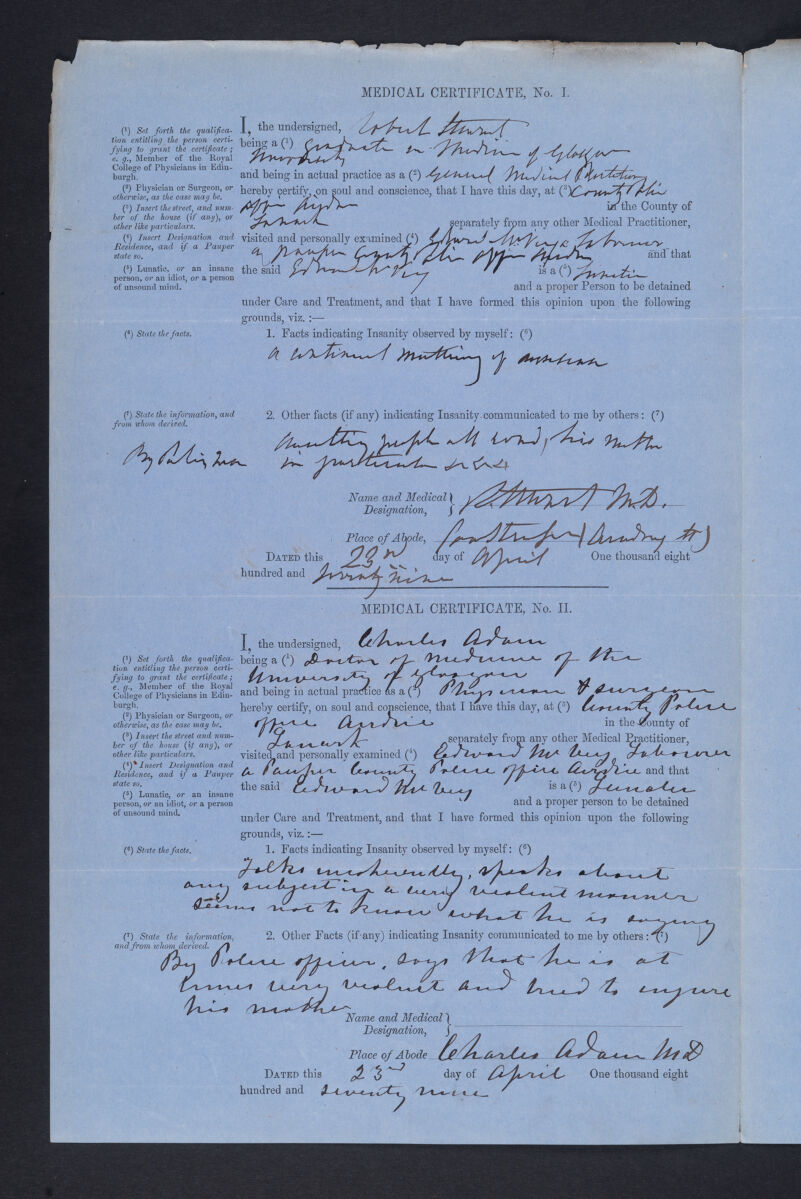 MEDICAL CERTIFICATE, No. I.
(1) Set forth the qualifica-
tion entitling the person certi-
fying to grant the certificate;
e. g., Member of the Royal
College of Physicians in Edin-
burgh.
(2) Physician or Surgeon, or
otherwise, as the case may be.
(3) Insert the street, and num-
ber of the house (if any), or
other like particulars.
(4) Insert Designation and
Residence, and if a Pauper
state so.
(5) Lunatic, or an insane
person, or an idiot, or a person
of unsound mind.
I, the undersigned, Robert Stewart
being a (1) graduate in Medicine of Glasgow
University
and being in actual practice as a (2) General Medical Practitioner
hereby certify, on soul and conscience, that I have this day, at (3) County Police
Office Airdrie in the County of
Lanark separately from any other Medical Practitioner,
visited and personally examined (4) Edward McVey a Labourer
a pauper County Police Office Airdrie and that
the said Edward McVey is a (5) Lunatic
and a proper Person to be detained
under Care and Treatment, and that I have formed this opinion upon the following
grounds, viz.:—
(6) State the facts.
1. Facts indicating Insanity observed by myself: (6)
a continual muttering of nonsense
(7) State the information, and
from whom derived.
2. Other facts (if any) indicating Insanity communicated to me by others: (7)
By Policeman
Assaulting people all round, his mother
in particular
Name and Medical
Designation,
R Stewart M.D.
Place of Abode, Coatbridge
DATED this 23rd day of April One thousand eight
hundred and seventy nine
MEDICAL CERTIFICATE, No. II.
(1) Set forth the qualifica-
tion entitling the person certi-
fying to grant the certificate;
e. g., Member of the Royal
College of Physicians in Edin-
burgh.
(2) Physician or Surgeon, or
otherwise, as the case may be.
(3) Insert the street and num-
ber of the house (if any), or
other like particulars.
(4) Insert Designation and
Residence, and if a Pauper
state so.
(5) Lunatic, or an insane
person, or an idiot, or a person
of unsound mind.
I, the undersigned, Charles Adam
being a (1) Doctor of Medicine of the
University of Glasgow
and being in actual practice as a (2) Physician & surgeon
hereby certify, on soul and conscience, that I have this day, at (3) County Police
office Airdrie in the County of
Lanark separately from any other Medical Practitioner,
visited and personally examined (4) Edward McVey Labourer
a Pauper County Police office Airdrie and that
the said Edward McVey is a (5) Lunatic
and a proper person to be detained
under Care and Treatment, and that I have formed this opinion upon the following
grounds, viz.:—
(6) State the facts.
1. Facts indicating Insanity observed by myself: (6)
Talks incoherently, speaks about
any subject in a very violent manner
seems not to know what he is saying
(7) State the information,
and from whom derived.
2. Other Facts (if any) indicating Insanity communicated to me by others: (7)
By Police officer, says that he is at
times very violent and tried to injure
his mother
Name and Medical
Designation,
Place of Abode Charles Adam MD
DATED this 23rd day of April One thousand eight
hundred and seventy nine